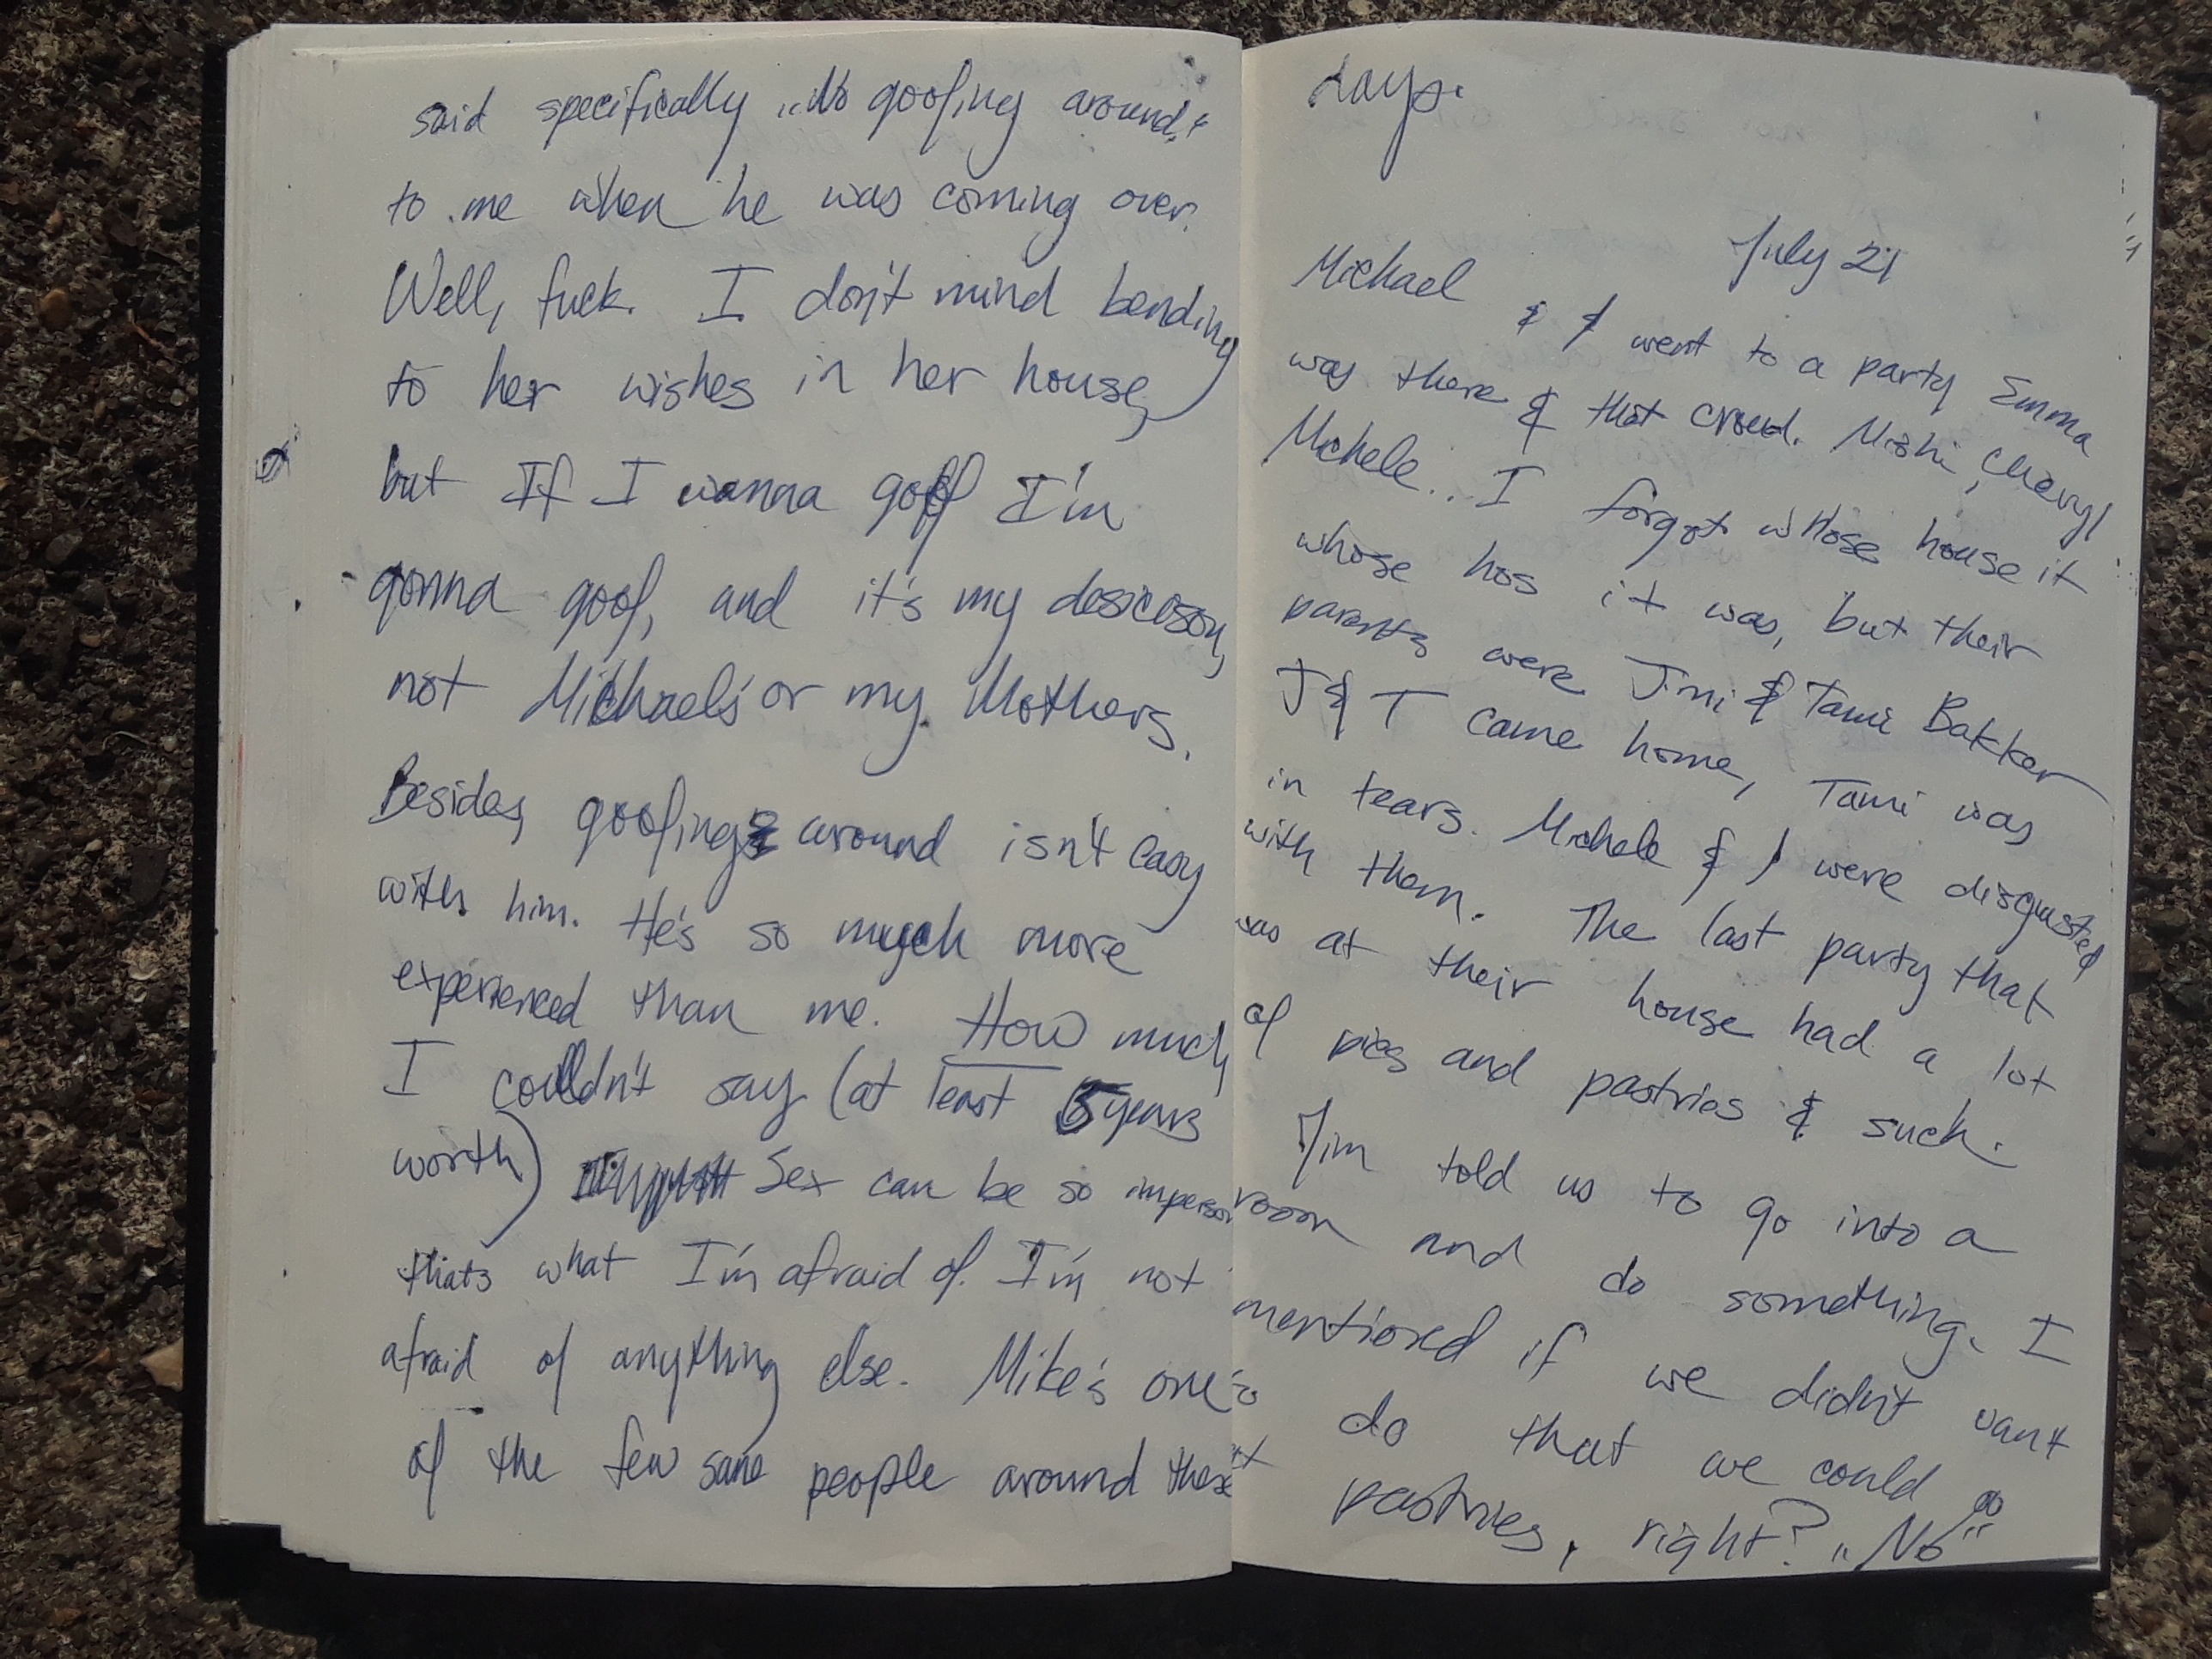 said specifically „No goofing around"
to me when he was coming over.
Well, fuck. I don't mind bending
to her wishes in her house,
but If I wanna goof I'm
gonna goof, and it's my desicison,
not Michael's or my Mothers.
Besides, goofing around isn't easy
with him. He's so much more
experienced than me. How much
I couldn't say (at least 5 years
worth) Sex can be so imperson
thats what I'm afraid of. I'm not
afraid of anything else. Mike's one
of the few sane people around these
days.
July 21
Michael & I went to a party Emma
was there & that crowd. Mishi, Cheryl
Michele.. I forgot whose house it
whose hos it was, but their
parents were Jmi & Tami Bakker
J & T came home, Tami was
in tears. Michele & I were disgusted
with them. The last party that
was at their house had a lot
of pies and pastries & such.
Jim told us to go into a
room and do something. I
mentioned if we didn't want
to do that we could
eat pastries, right? „No"